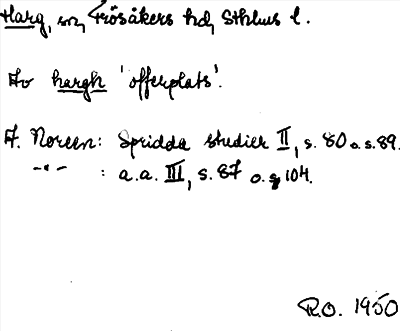 Harg, sn, Frösåkers hd, Sthlms l.
Av hargh 'offerplats'.
A. Noreen: Spridda studier II, s. 80 o. s. 89.
-"- : a.a. III, s. 87 o. s. 104.
R.O. 1950